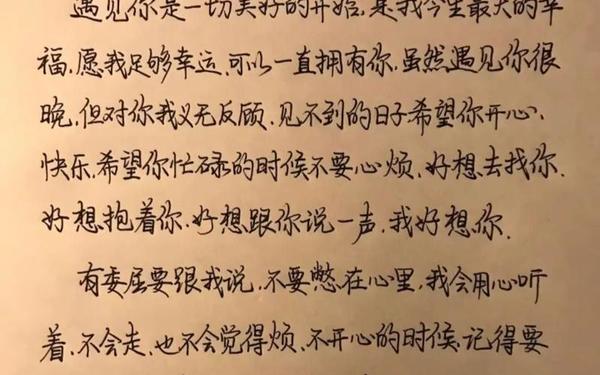 遇见你是一切美好的开始,是我今生最大的幸
福,愿我足够幸运,可以一直拥有你,虽然遇见你很
晚,但对你我义无反顾,见不到的日子希望你开心、
快乐,希望你忙碌的时候不要心烦,好想去找你.
好想抱着你.好想跟你说一声,我好想你.
有委屈要跟我说,不要憋在心里,我会用心听
着,不会走,也不会觉得烦,不开心的时候,记得要